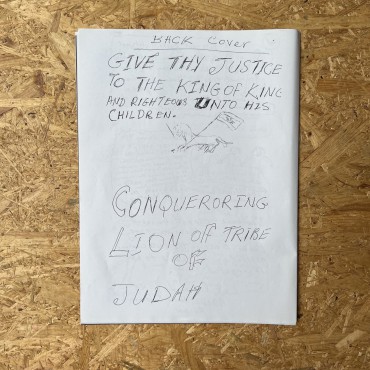 BACK Cover
GIVE THY JUSTICE
TO THE KING OF KING
AND RIGHTEOUS UNTO HIS
CHILDREN.
CONQUERORING
LION OFF TRIBE
OF
JUDAH